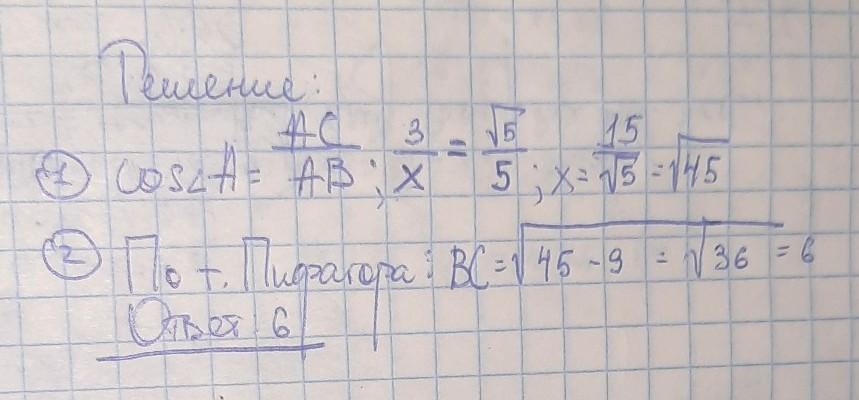 Решение:
① cos∠A = AC/AB; 3/x = √5/5; x = 15/√5 = √45
② По т. Пифагора: BC = √45 - 9 = √36 = 6
Ответ 6